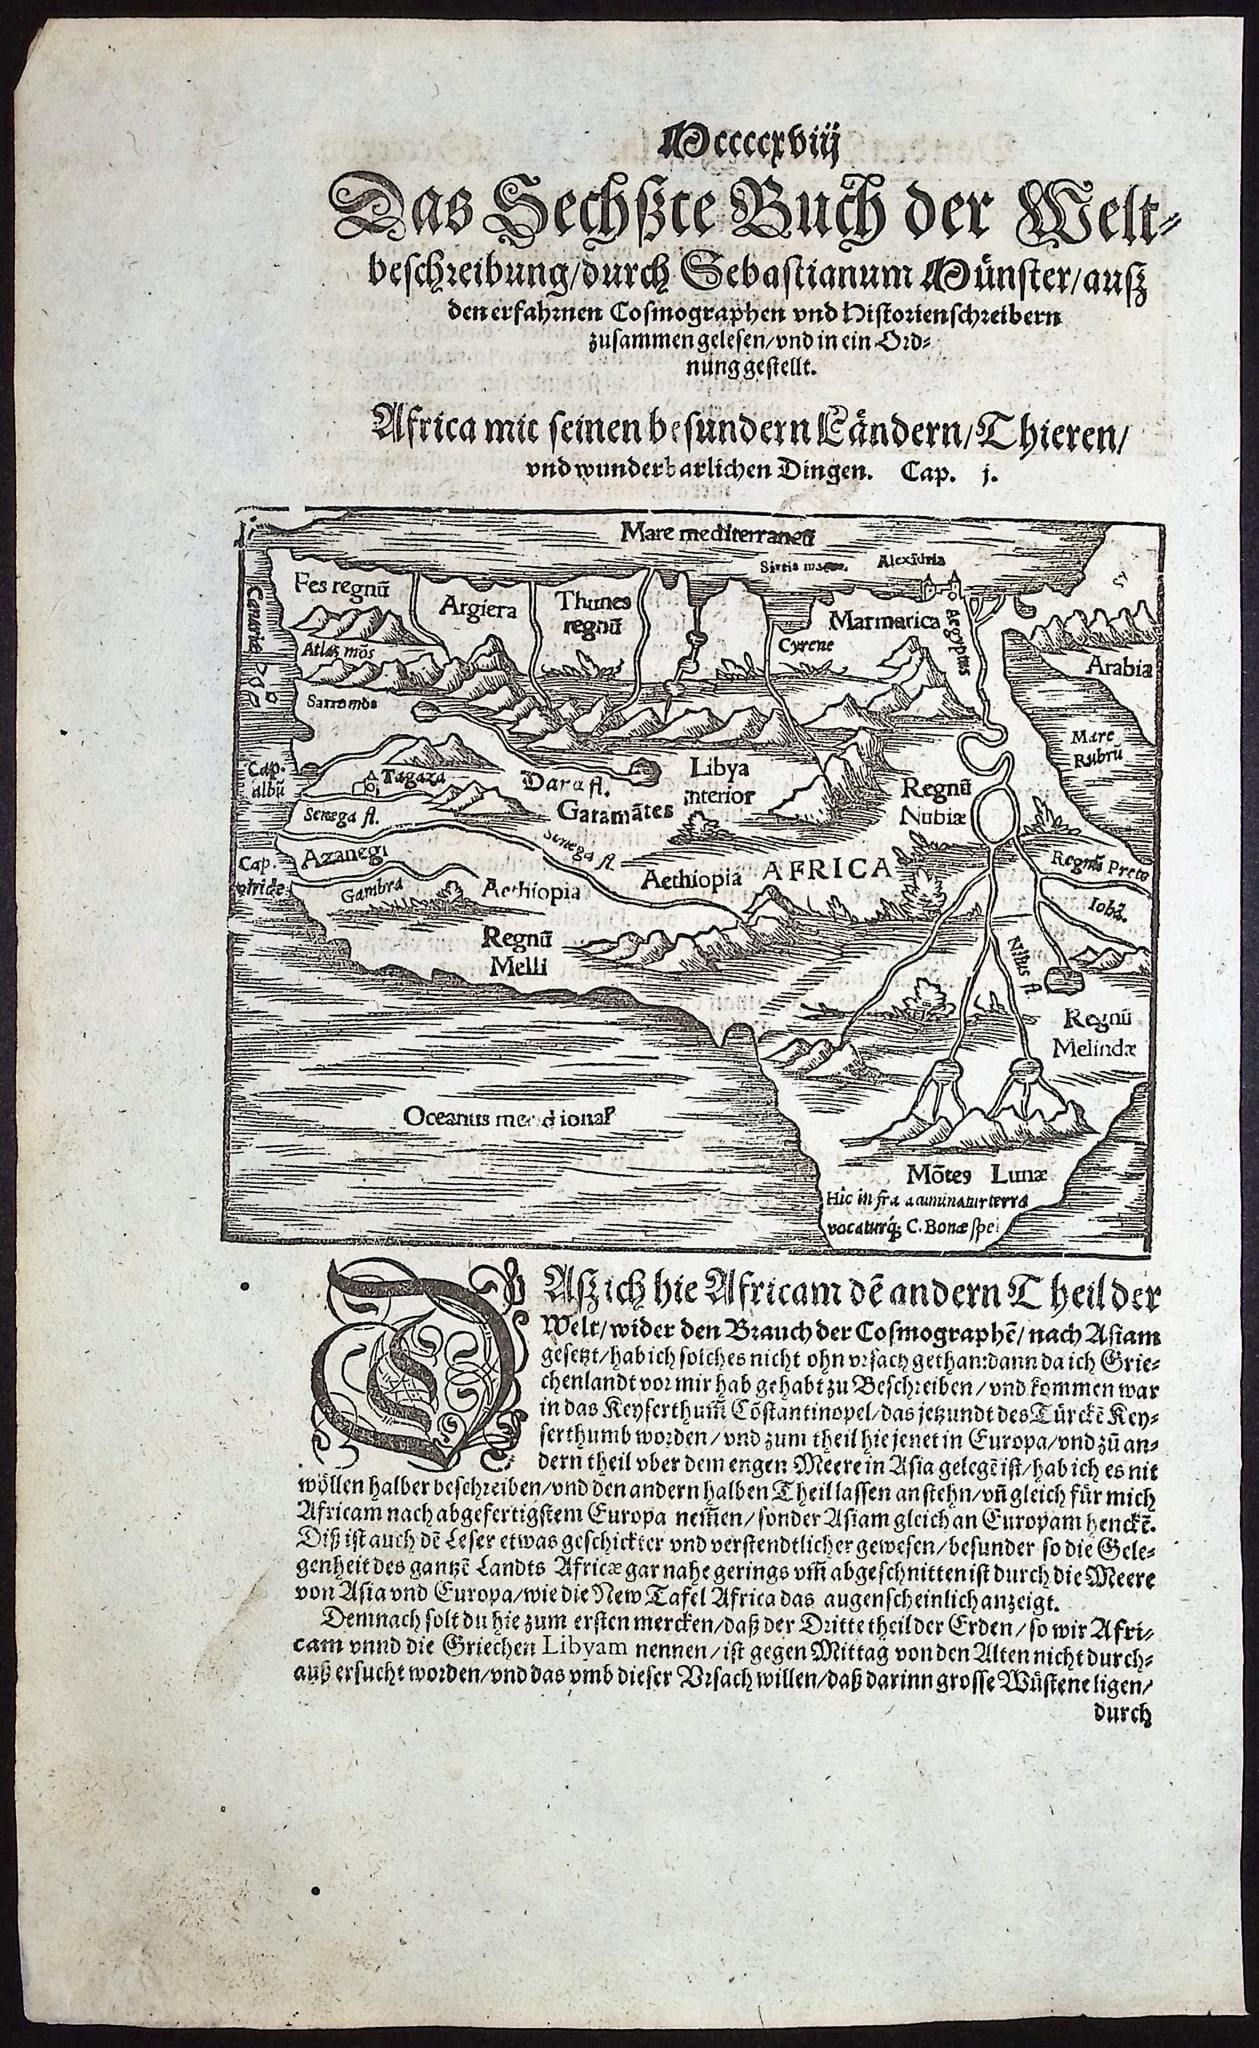 Mccccxviij
Das Sechßte Buch der Welt-
beschreibung/durch Sebastianum Münster/auß
den erfahrnen Cosmographen vnd Historienschreibern
zusammen gelesen/vnd in ein Ord-
nung gestellt.
Africa mit seinen besundern Ländern/Thieren/
vnd wunderbarlichen Dingen. Cap. j.
Mare mediterraneū
Sirtis
Alexādria
Fes regnū
Argiera
Thunes
regnū
Marmarica
Canariæ
Atlas mōs
Cyrene
Aegyptus
Arabiæ
Sarro mōs
Mare
Rubrū
Cap.
albū
Tagaza
Dara fl.
Libya
interior
Regnū
Nubiæ
Senega fl.
Garamātes
Azanegi
Senega fl.
Cap.
viride
Gambra
Aethiopia
Aethiopia
AFRICA
Regnū Preto
Iohā.
Regnū
Melli
Nilus fl.
Regnū
Melindæ
Oceanus meridional
Mōtes Lunæ
Hic infra acuminatur terra
vocaturq; C. Bonæ spei
DAß ich hie Africam dē andern Theil der
Welt/wider den Brauch der Cosmographē/nach Asiam
gesetzt/hab ich solches nicht ohn vrsach gethan: dann da ich Grie-
chenlandt vor mir hab gehabt zu Beschreiben/vnd kommen war
in das Keyserthum̄ Cōstantinopel/das jetzundt des Türckē Key-
serthumb worden/vnd zum theil hie jenet in Europa/vnd zū an-
dern theil vber dem engen Meere in Asia gelegē ist/hab ich es nit
wöllen halber beschreiben/vnd den andern halben Theil lassen anstehn/vn̄ gleich für mich
Africam nach abgefertigstem Europa nem̄en/sonder Asiam gleich an Europam henckē.
Diß ist auch dē Leser etwas geschickter vnd verstendtlicher gewesen/besunder so die Gele-
genheit des gantzē Landts Africæ gar nahe gerings vm̄ abgeschnitten ist durch die Meere
von Asia vnd Europa/wie die New Tafel Africa das augenscheinlich anzeigt.
Demnach solt du hie zum ersten mercken/daß der Dritte theil der Erden/so wir Afri-
cam vnnd die Griechen Libyam nennen/ist gegen Mittag von den Alten nicht durch-
auß ersucht worden/vnd das vmb dieser Vrsach willen/daß darinn grosse Wüstene ligen/
durch